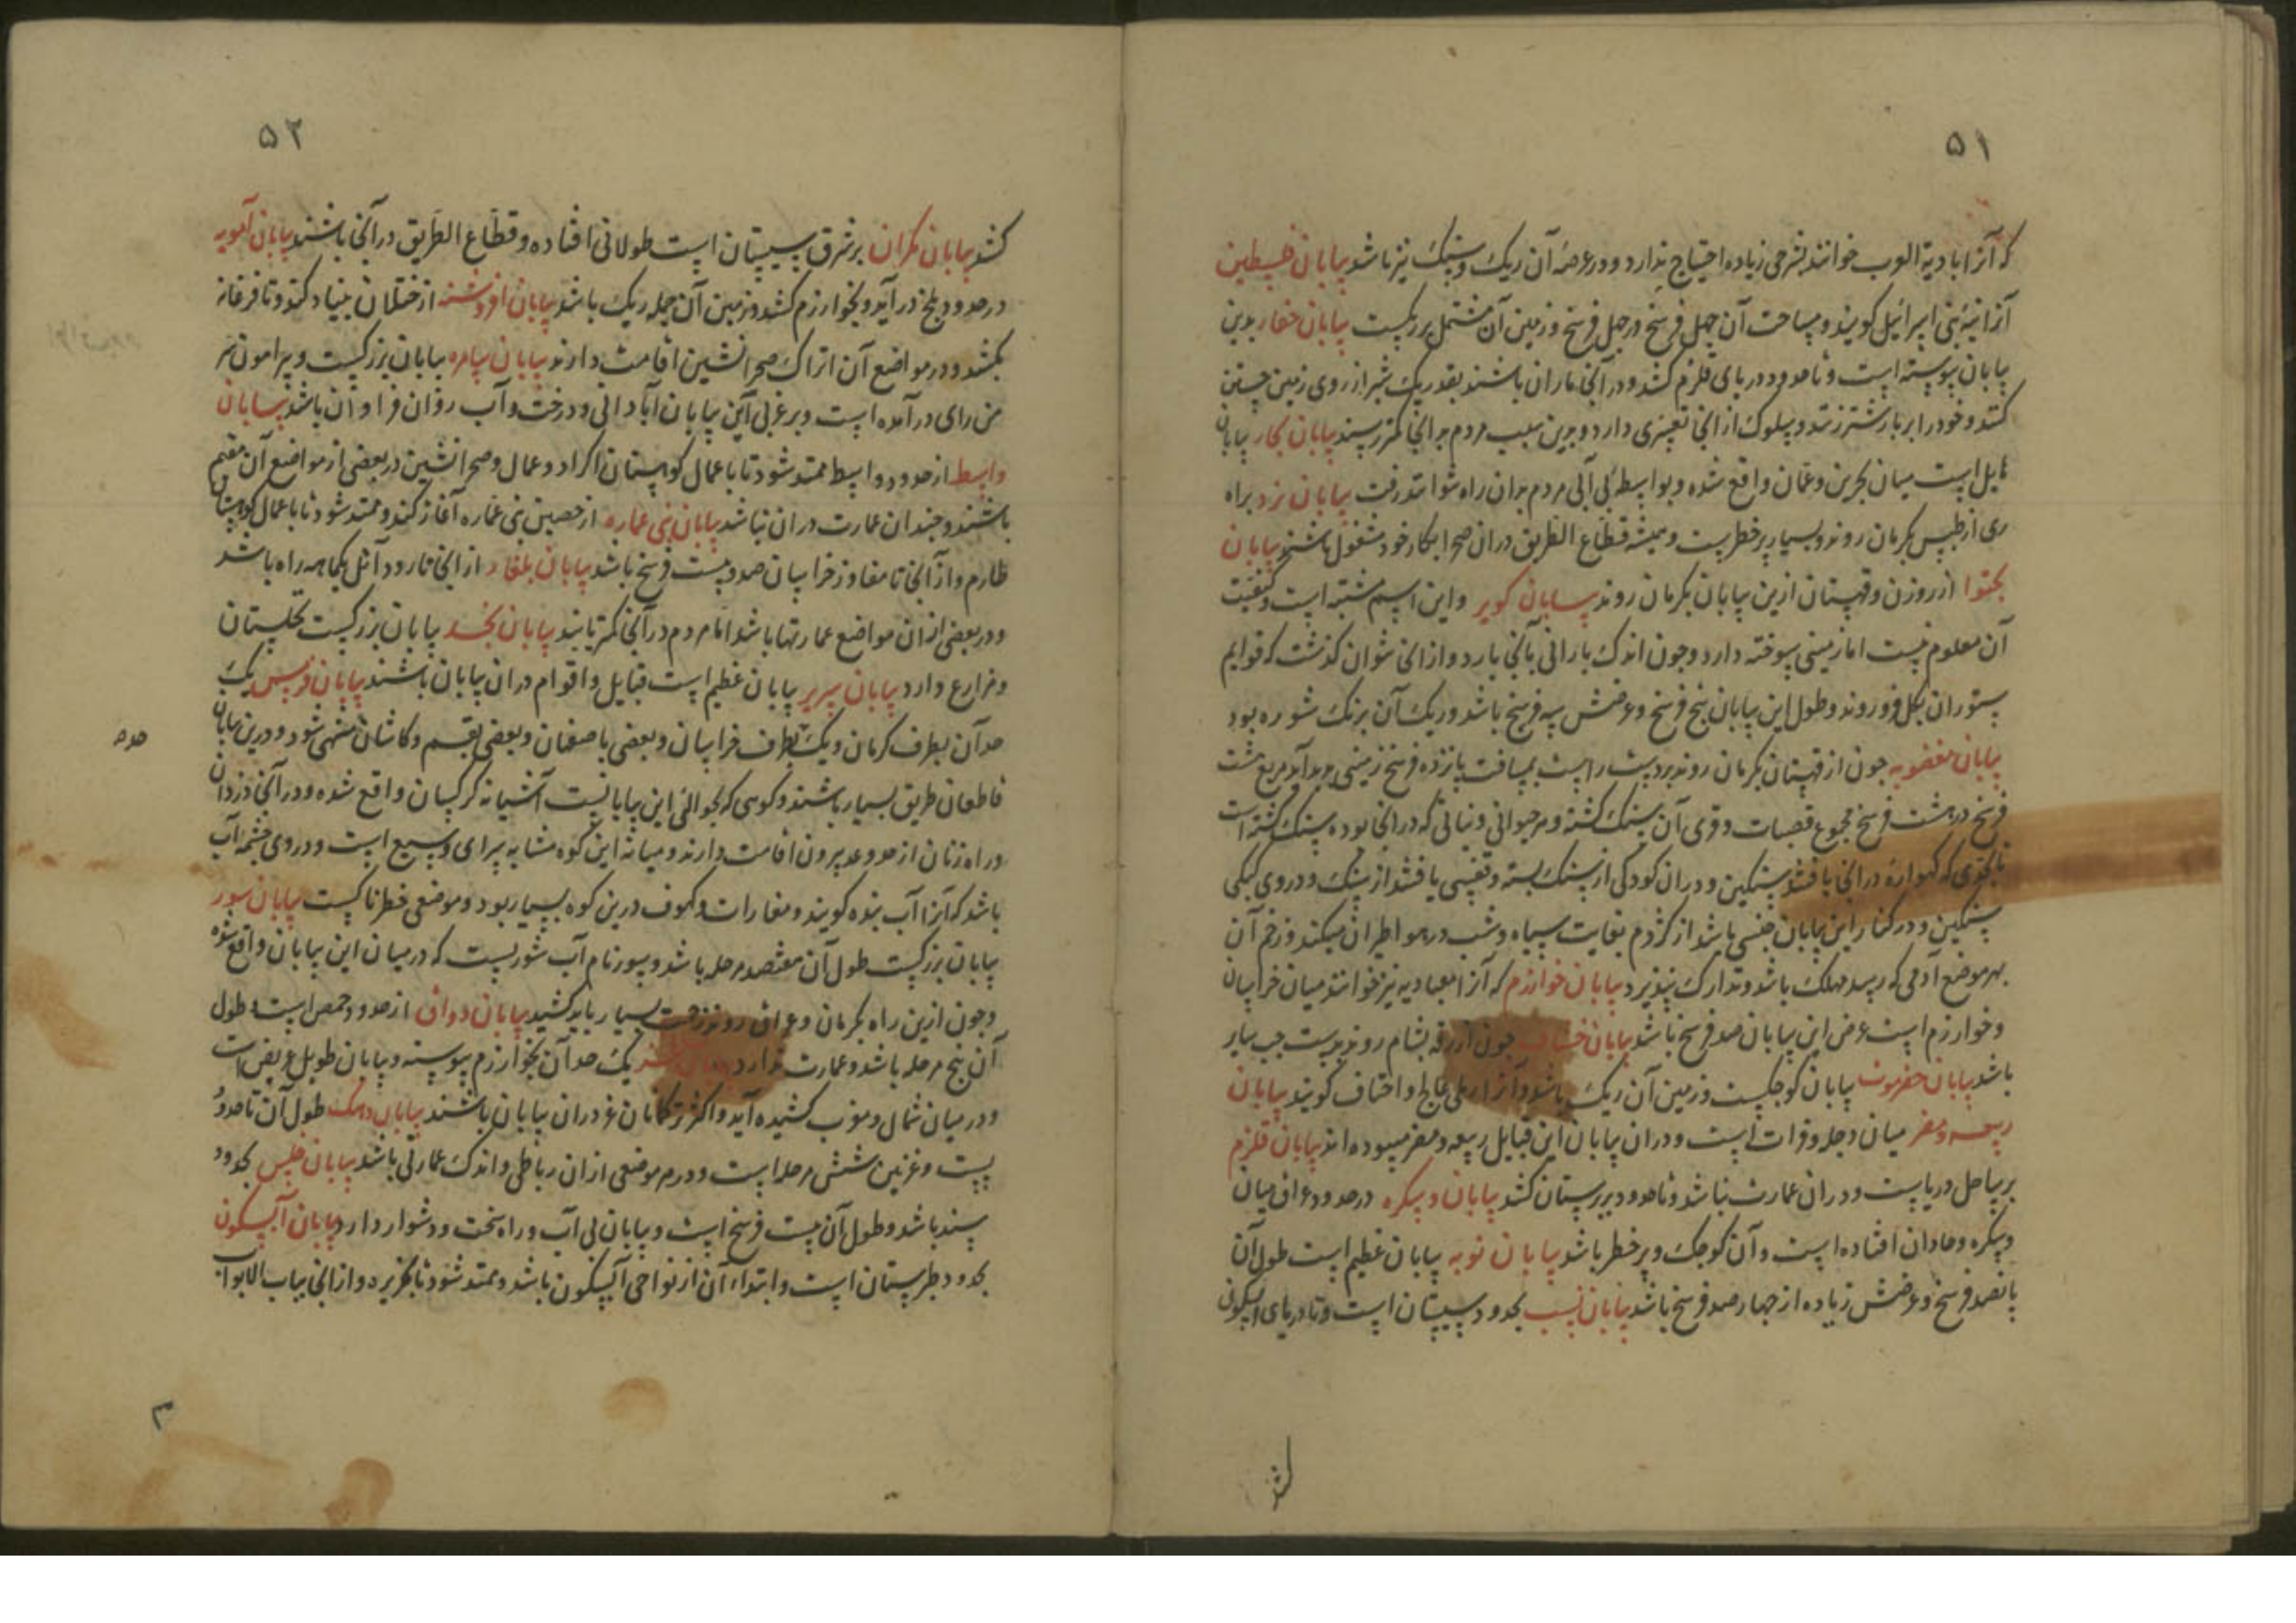 ۵۱
که آنرا بادیة العرب خوانند بشرحی زیاده احتیاج ندارد و در عرصهٔ آن ریک و سنک نیز باشد بیابان فلسطین
آنرا تیه بنی اسرائیل کویند و مساحت آن چهل فرسخ در چهل فرسخ و زمین آن مشتمل بر ریکست بیابان حفار بدین
بیابان پیوسته است و تا حدود دریای قلزم کشد و در آنجا ماران باشند بقدر یک شبر از روی زمین جستن
کنند و خود را بر بار شتر زنند و سلوک از آنجا تعسری دارد و بدین سبب مردم بر آنجا کمتر رسند بیابان بحار بیابان
هایل است میان بحرین و عمان واقع شده و بواسطهٔ بی آبی مردم بدان راه نتوانند رفت بیابان یزد براه
ری از طبس بکرمان روند و بسیار پرخطرست و همیشه قطاع الطریق در ان صحرا بکار خود مشغول باشند بیابان
از روزن و قهستان ازین بیابان بکرمان روند بیابان کویر و این اسم مشتبه است و کیفیت
آن معلوم نیست اما زمینی سوخته دارد و چون اندک بارانی بآنجا بارد و از انجا نتوان کذشت که قوایم
ستوران بکل فرو روند و طول این بیابان پنج فرسخ و عرضش سه فرسخ باشد و ریک آن برنک شوره بود
بیابان مغضوبه چون از قهستان بکرمان روند بر دست راست بمسافت پانزده فرسخ زمینی پدید آید مربع هشت
فرسخ در هشت فرسخ مجموع قصبات و قری آن سنک کشته و هر حیوانی و نباتی که در آنجا بوده سنک کشته است
تا بحدی که کهوارهٔ در آنجا یافتند سنکین و در ان کودکی از سنک بسته و قفسی یافتند از سنک و در وی کبکی
سنکین و در کنار این بیابان جنسی باشد از کژدم بغایت سیاه و شب در هوا طیران میکند و زخم آن
بهر موضع آدمی که رسد مهلک باشد و تدارک نپذیرد بیابان خوارزم که آنرا معبادیه نیز خوانند میان خراسان
و خوارزم است عرض این بیابان صد فرسخ باشد بیابان خشاف چون از رقه بشام روند بدست چپ سایر
باشد بیابان حضرموت بیابان کوچکست و زمین آن ریک باشد و آنرا رمل عالج و احقاف کویند بیابان
ربیعه و مضر میان دجله و فرات است و در ان بیابان این قبایل ربیعه و مضر میبوده اند بیابان قلزم
بر ساحل دریاست و در ان عمارت نباشد و تا حدود کشد بیابان دسکره در حدود عراق میان
دسکره و افتاده است و آن کوچک و پر خطر باشد بیابان نوبه بیابان عظیم است طول آن
پانصد فرسخ و عرضش زیاده از چهار صد فرسخ باشد بیابان بحدود سیستان است و تا دریای آبسکون
کشد
۵۲
کشد بیابان مکران بر شرق سیستان است طولانی افتاده و قطاع الطریق در آنجا باشند بیابان آمویه
در حدود بلخ در آید و بخوارزم کشد و زمین آن جمله ریک باشد بیابان از ختلان بنیاد کند و تا فرغانه
بکشد و در مواضع آن اتراک صحرانشین اقامت دارند بیابان بیابان بزرکیست و پیرامون سر
من رای در آمده است و بر غربی این بیابان آبادانی و درخت و آب روان فراوان باشد بیابان
واسط از حدود واسط ممتد شود تا باعمال کوهستان اکراد و عمال و صحرانشین در بعضی از مواضع آن مقیم
باشند و چندان عمارت در ان نباشد بیابان بنی عماره از حصین بنی عماره آغاز کند و ممتد شود تا باعمال کوهستان
طارم و از آنجا تا مفاوز خراسان صد و بیست فرسخ باشد بیابان بلغار از انجا تا رود آتل یکماهه راه باشد
و در بعضی از ان مواضع عمارتها باشد اما مردم در آنجا کمتر پایند بیابان نجد بیابان بزرکیست نخلستان
و مزارع دارد بیابان سریر بیابان عظیم است قبایل و اقوام در ان بیابان باشند بیابان یک
حد آن بطرف کرمان و یک بطرف خراسان و بعضی باصفهان و بعضی بقم و کاشان منتهی شود و درین بیابان
قاطعان طریق بسیار باشند و کوهی که بحوالی این بیابانست آشیانه کرکسان واقع شده و در آنجا دزدان
و راه زنان از حد و عد بیرون اقامت دارند و میانهٔ این کوه مشابه سرای وسیع است و در وی چشمه آب
باشد که آنرا آب بنده کویند و مغارات و کهوف درین کوه بسیار بود و موضعی خطرناکست بیابان سور
بیابان بزرکیست طول آن هفتصد مرحله باشد و سور نام آب شوریست که در میان این بیابان واقع شده
و چون ازین راه بکرمان و عراق روند زحمت بسیار باید کشید بیابان از حدود حمص است و طول
آن پنج مرحله باشد و عمارت ندارد بیابان یک حد آن بخوارزم پیوسته و بیابان طویل عریض است
و در میان شمال و مغرب کشیده آید و اکثر ترکمانان غز در ان بیابان باشند بیابان دهک طول آن تا حدود
بست و غزنین شش مرحله است و در هر موضعی از ان رباطی و اندک عمارتی باشد بیابان بحدود
سند باشد و طول آن بیست فرسخ است و بیابان بی آب و راه سخت و دشوار دارد بیابان آبسکون
بحدود طبرستان است و ابتداء آن از نواحی آبسکون باشد و ممتد شود تا بخزر و از آنجا بباب الابواب
۳